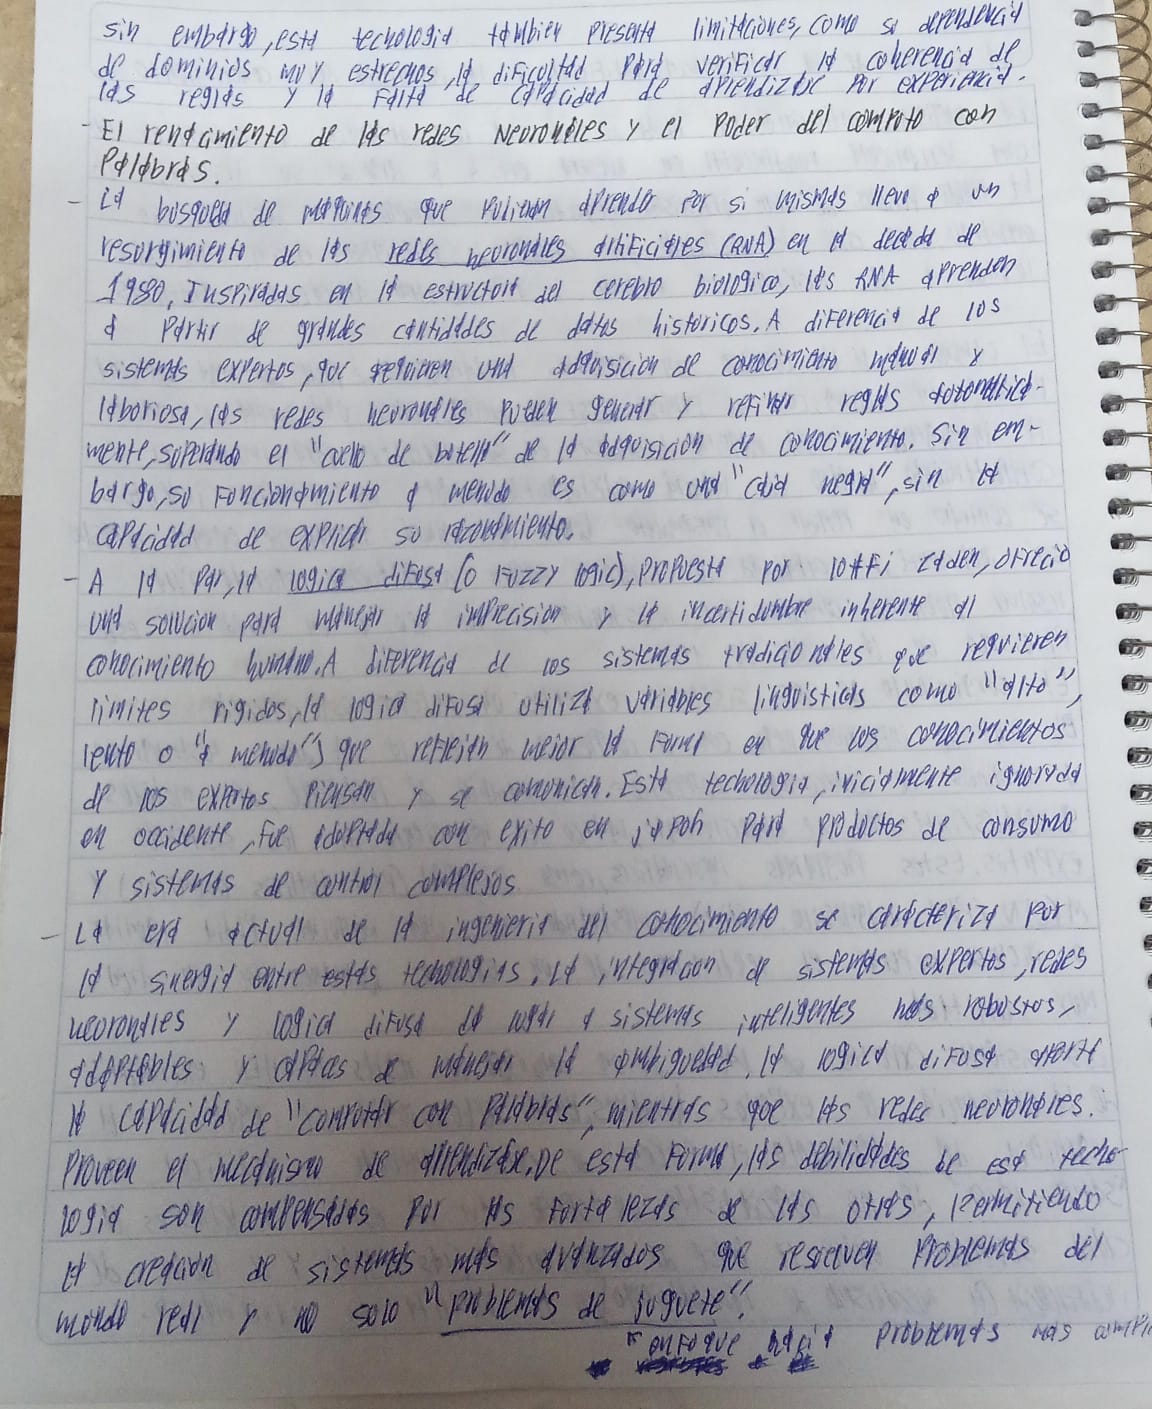 sin embargo, esta tecnologia tambien presenta limitaciones, como su dependencia
de dominios muy estrechos, la dificultad para verificar la coherencia de
las reglas y la falta de capacidad de aprendizaje por experiencia.
- El rendimiento de las redes Neuronales y el Poder del computo con
Palabras.
- La busqueda de maquinas que pudieran aprender por si mismas llevo a un
resurgimiento de las redes neuronales artificiales (RNA) en la decada de
1980, Inspiradas en la estructura del cerebro biologico, las RNA aprenden
a partir de grandes cantidades de datos historicos. A diferencia de los
sistemas expertos, que requieren una adquisicion de conocimiento manual y
laboriosa, las redes neuronales pueden generar y refinar reglas automatica-
mente, superando el "cuello de botella" de la adquisicion de conocimiento. Sin em-
bargo, su Funcionamiento a menudo es como una "caja negra", sin la
capacidad de explicar su razonamiento.
- A la par, la logica difusa (o Fuzzy logic), propuesta por lotfi zaden, ofrecio
una solucion para manejar la imprecision y la incertidumbre inherente al
conocimiento humano. A diferencia de los sistemas tradicionales que requieren
limites rigidos, la logica difusa utiliza variables linguisticas como "alto",
lento o "a menudo") que reflejan mejor la forma en que los conocimientos
de los expertos piensan y se comunican. Esta tecnologia, iniciamente ignorada
en occidente, fue adoptada con exito en japon para productos de consumo
y sistemas de control complejos
- La era actual de la ingenieria del conocimiento se caracteriza por
la sinergia entre estas tecnologias. La integracion de sistemas expertos, redes
neuronales y logica difusa da lugar a sistemas inteligentes mas robustos,
adaptables y de manejar la ambiguedad. la logica difusa aporta
la capacidad de "computar con Palabras", mientras que las redes neuronales.
Proveen el mecanismo de aprendizaje. De esta forma, las debilidades de esa tecno-
logia son compensadas por las fortalezas de las otras, permitiendo
la creacion de sistemas mas avanzados que resuelven problemas del
mundo real y no solo "problemas de juguete".
* enfoque hacia problemas mas